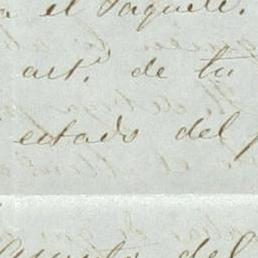 a el Paquete.
art.º de tu
estado del
del